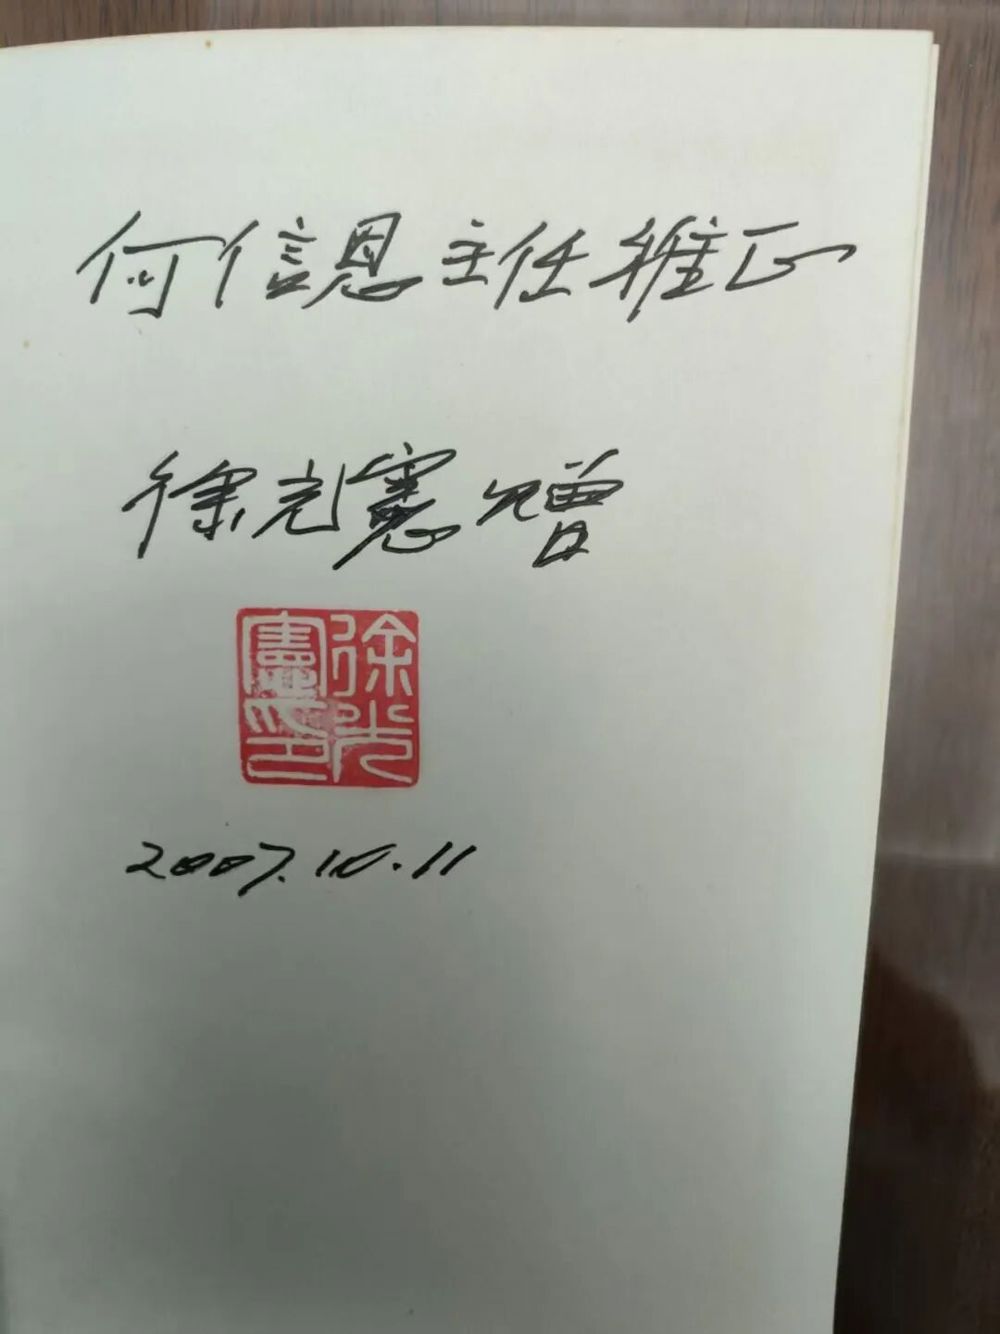 何信恩主任雅正
徐光憲贈
徐光憲印
2007.10.11